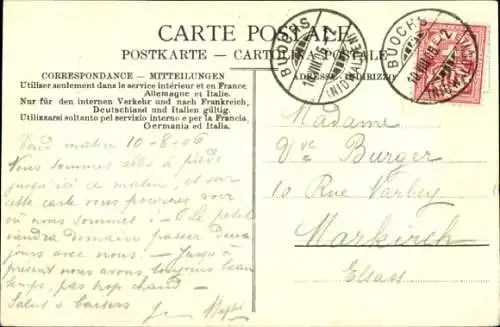 CARTE POSTALE
POSTKARTE — CARTOLINA POSTALE
CORRESPONDANCE - MITTEILUNGEN
Utiliser seulement dans le service intérieur et en France,
Allemagne et Italie.
Nur für den internen Verkehr und nach Frankreich,
Deutschland und Italien gültig.
Utilizzarsi soltanto pel servizio interno e per la Francia,
Germania ed Italia.
ADRESSE - INDIRIZZO
BUOCHS
10.VIII.06
(NIDWALDEN)
BUOCHS
10.VIII.06
(NIDWALDEN)
Vend matin 10-8-06
Nous sommes allés à pied
jusqu'ici ce matin, et sur
cette carte vous pourrez voir
où nous sommes! — Le petit
viendra demain passer deux
jours avec nous. — Jusqu'à
présent nous avons toujours beau
temps, pas trop chaud —
Salut & baisers
Madame
Vve Burger
10 Rue Varbey
Markirch
Elsass